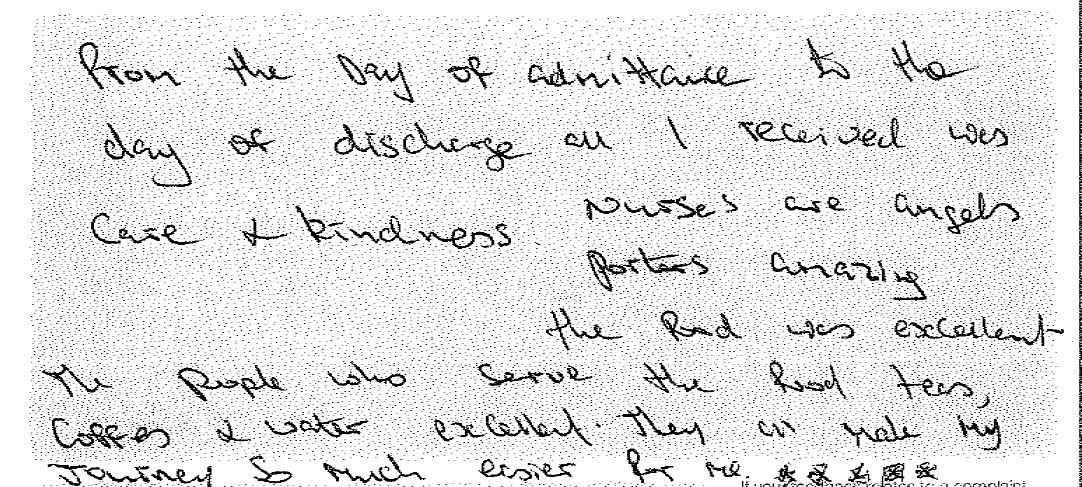 From the Day of admittance to the
day of discharge all I received was
Care & kindness. Nurses are angels
porters amazing
the food was excellent
The people who serve the food teas,
Coffees & water excellent. They all made my
Journey So much easier for me. ★★★★★